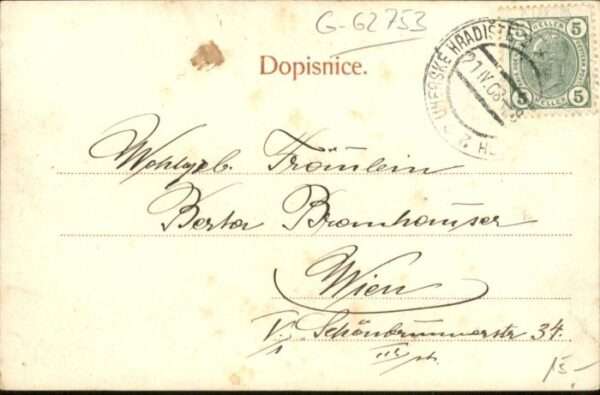 G-62753
Dopisnice.
UHERSKÉ HRADIŠTĚ
21 IV. 08
5 HELLER 5
5 HELLER 5
Wohlgeb. Fräulein
Berta Bramhauser
Wien
V/1 Schönbrunnerstr 34
15-